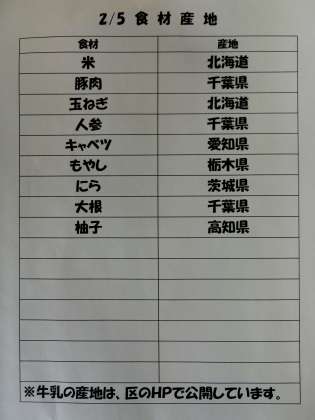 2/5 食材産地
食材 産地
米 北海道
豚肉 千葉県
玉ねぎ 北海道
人参 千葉県
キャベツ 愛知県
もやし 栃木県
にら 茨城県
大根 千葉県
柚子 高知県
※牛乳の産地は、区のHPで公開しています。